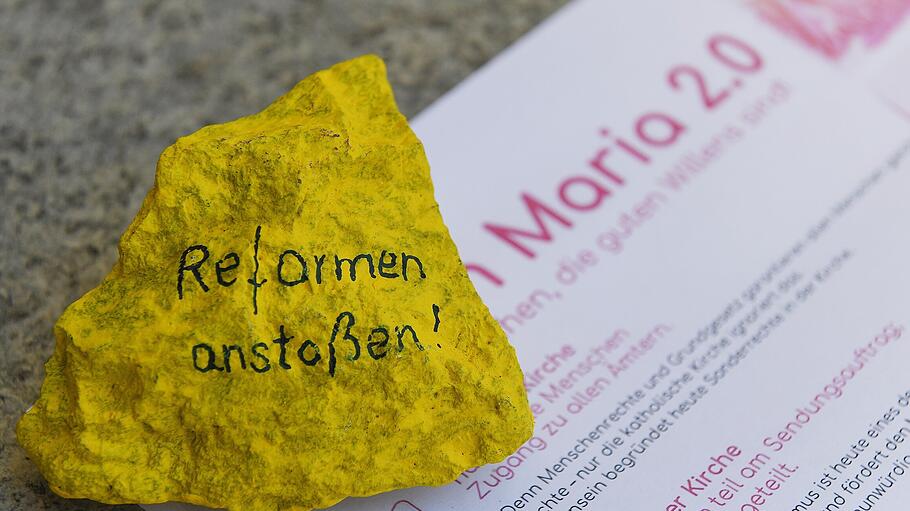 Reformen
anstoßen!
n Maria 2.0
hen, die guten Willens sind
kirche
e Menschen
Zugang zu allen Ämtern.
Denn Menschenrechte und Grundgesetz garantieren allen Menschen
chte – nur die katholische Kirche ignoriert das.
nsein begründet heute Sonderrechte in der Kirche.
er Kirche
teil am Sendungsauftrag,
geteilt.
mus ist heute eines de
nd fördert den
unwürdig